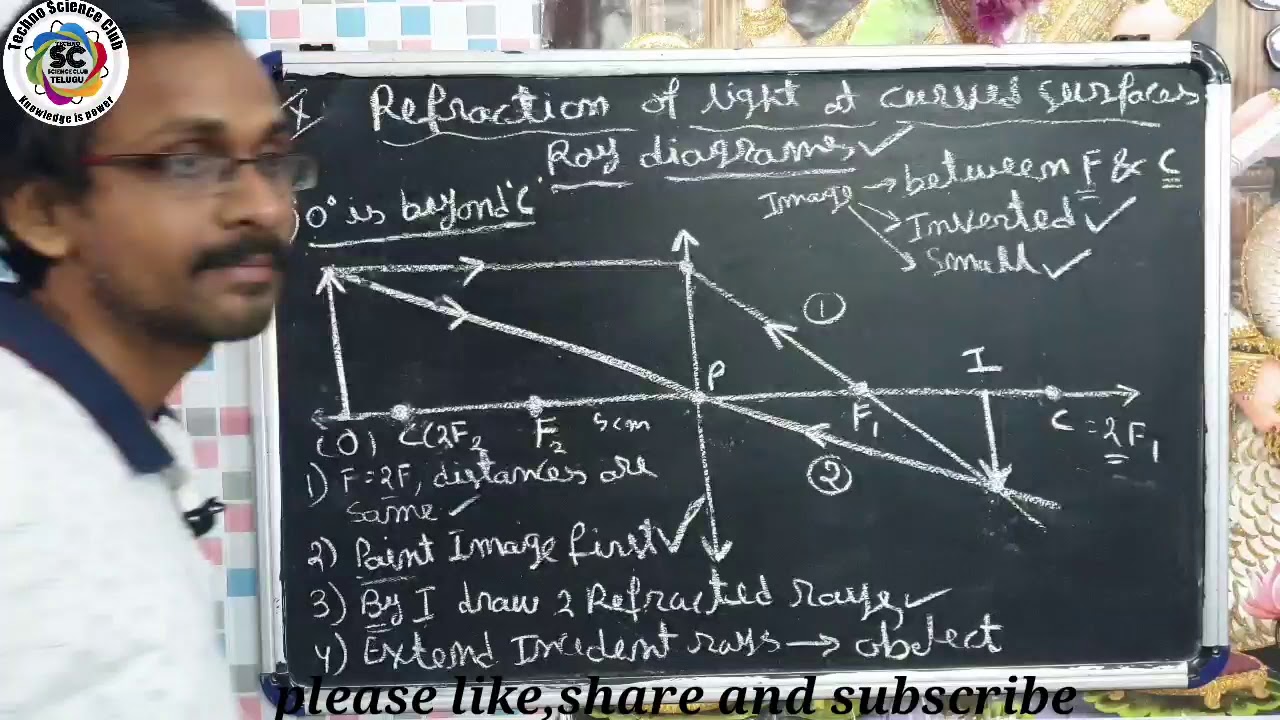 Techno Science Club
TECHNO
SC
SCIENCE CLUB
TELUGU
Knowledge is power
X Refraction of light at curved surfaces
Ray diagrams ✓
) 'O' is beyond 'C'
Image → between F & C
→ Inverted ✓
→ Small ✓
①
P
I
(O) C(2F₂ F₂ 5cm
F₁
C = 2F₁
②
1) F = 2F, distances are
same ✓
2) Point Image first ✓
3) By I draw 2 Refracted rays ✓
4) Extend Incident rays → object
please like,share and subscribe